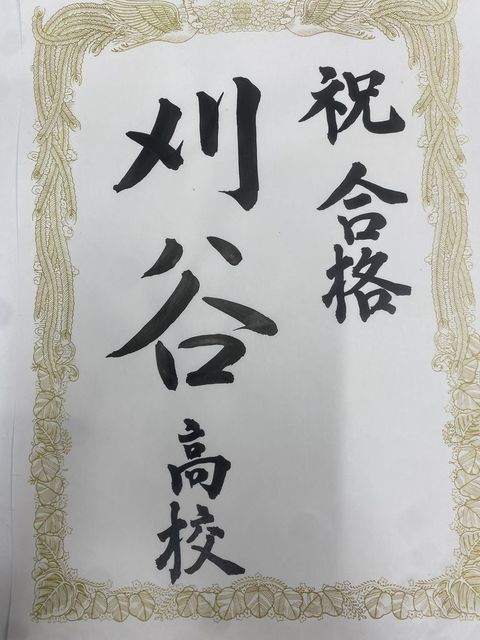 祝合格
刈谷高校